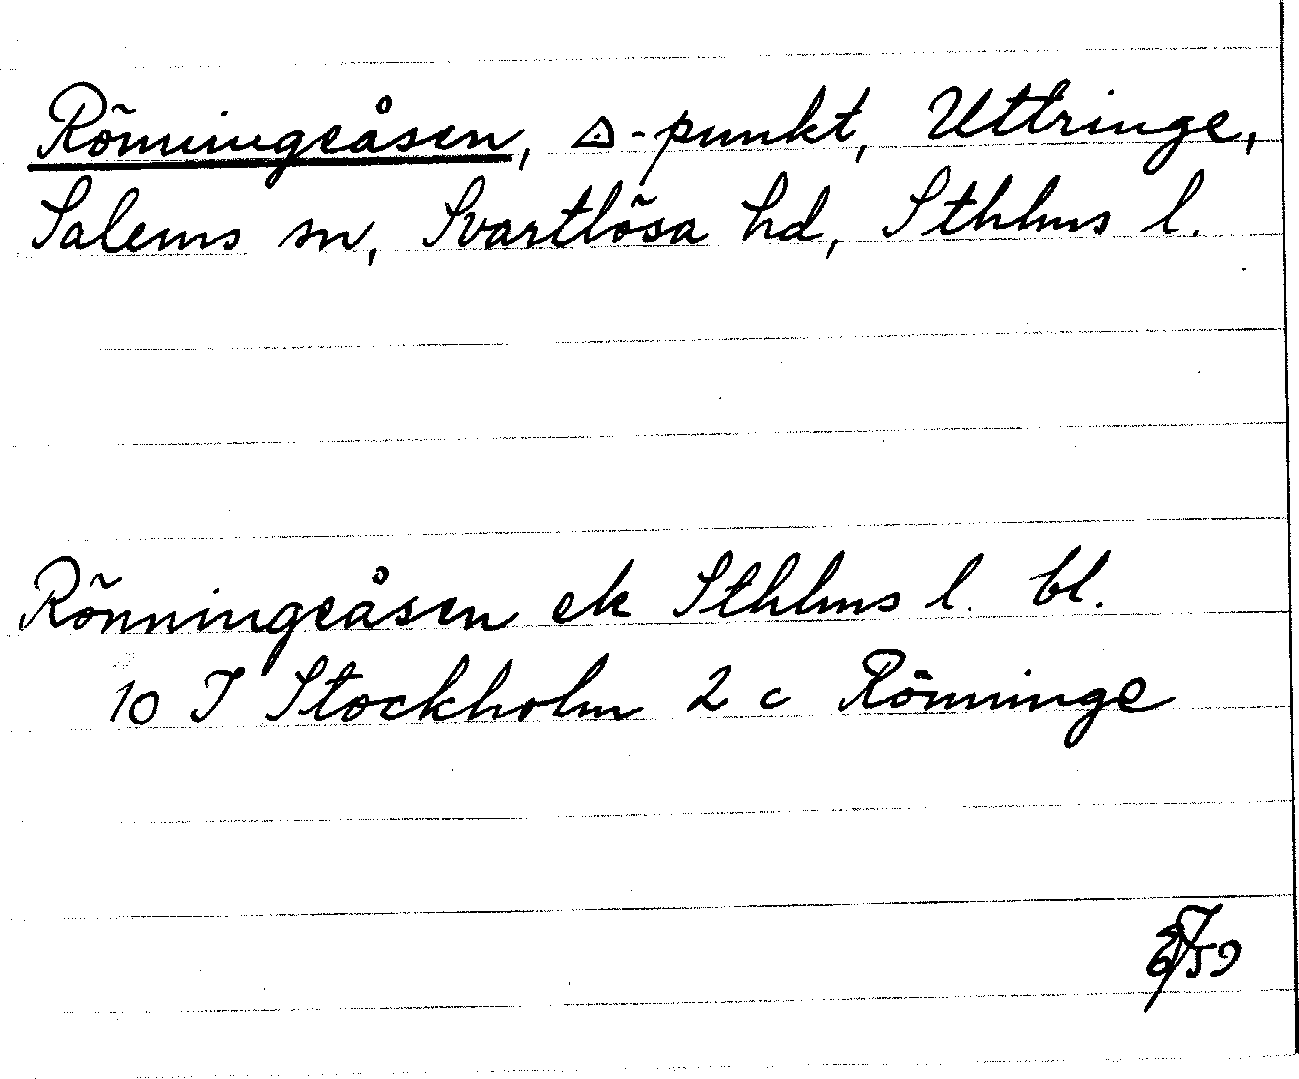 Rönningeåsen, △-punkt, Uttringe,
Salems sn, Svartlösa hd, Sthlms l.
Rönningeåsen ek Sthlms l. bl.
10 I Stockholm 2 c Rönninge